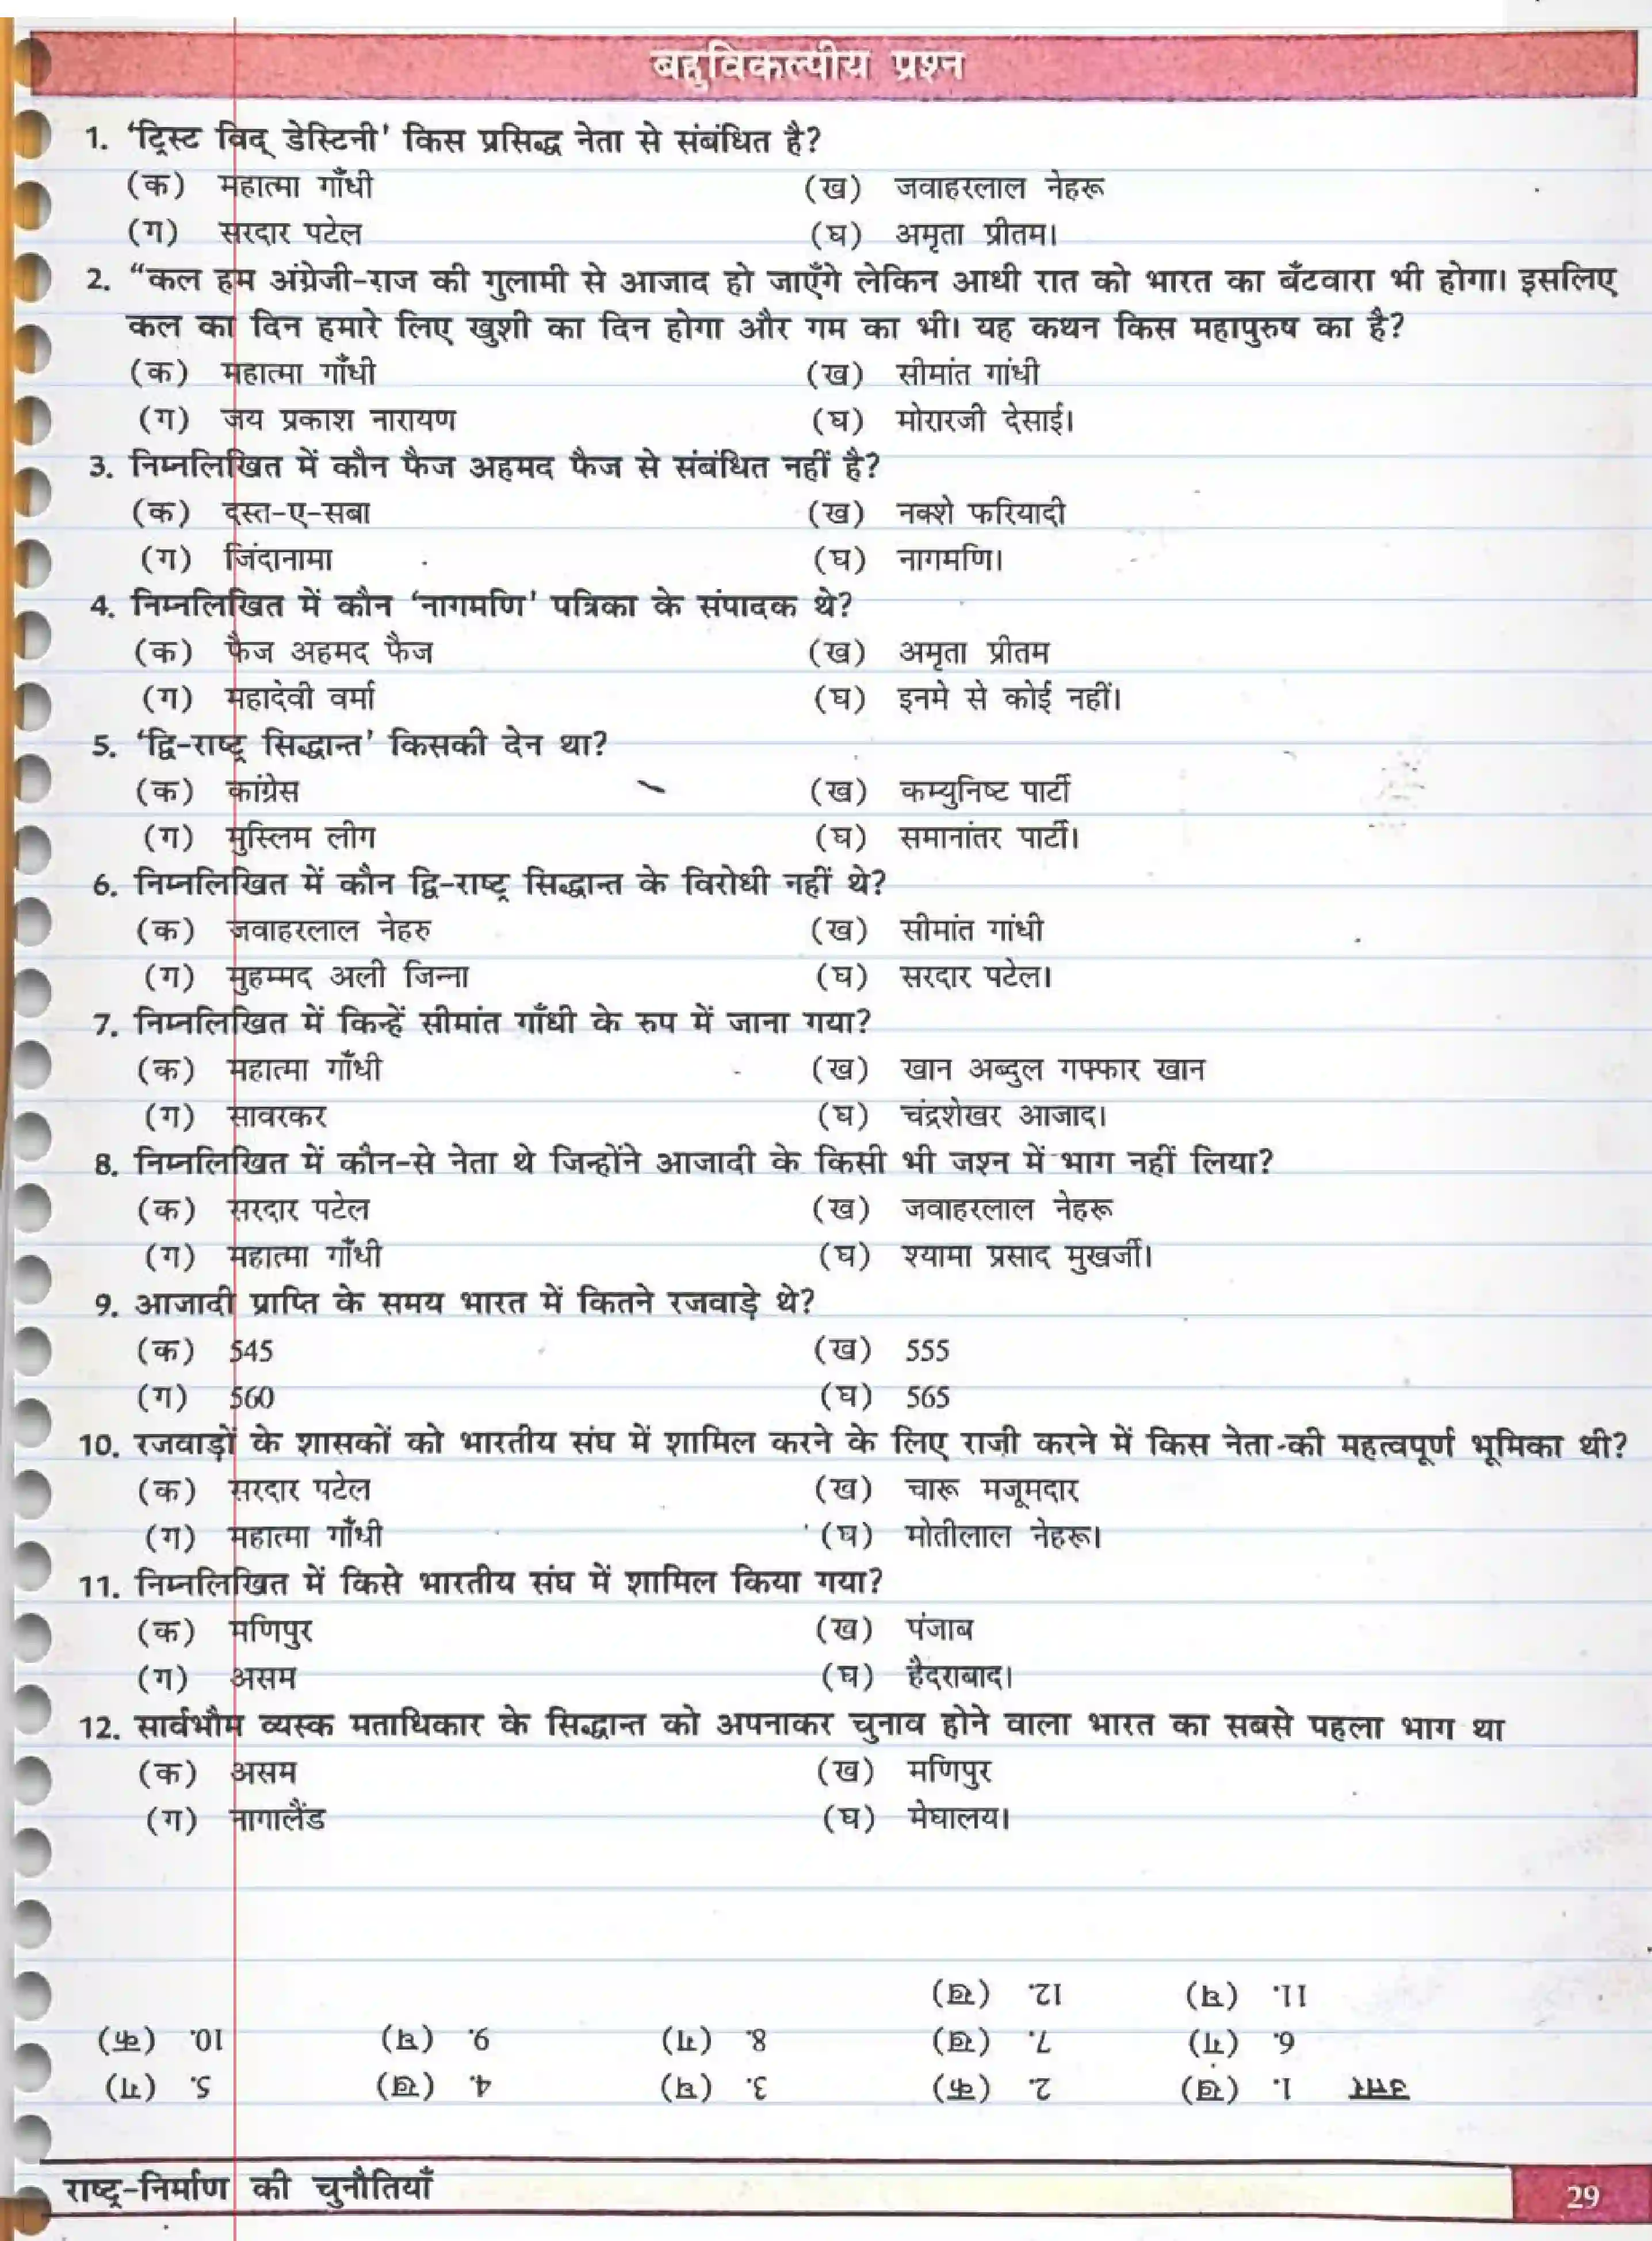 बहुविकल्पीय प्रश्न
1. ‘ट्रिस्ट विद् डेस्टिनी' किस प्रसिद्ध नेता से संबंधित है?
(क) महात्मा गाँधी (ख) जवाहरलाल नेहरू
(ग) सरदार पटेल (घ) अमृता प्रीतम।
2. “कल हम अंग्रेजी-राज की गुलामी से आजाद हो जाएँगे लेकिन आधी रात को भारत का बँटवारा भी होगा। इसलिए
कल का दिन हमारे लिए खुशी का दिन होगा और गम का भी। यह कथन किस महापुरुष का है?
(क) महात्मा गाँधी (ख) सीमांत गांधी
(ग) जय प्रकाश नारायण (घ) मोरारजी देसाई।
3. निम्नलिखित में कौन फैज अहमद फैज से संबंधित नहीं है?
(क) दस्त-ए-सबा (ख) नक्शे फरियादी
(ग) जिंदानामा (घ) नागमणि।
4. निम्नलिखित में कौन ‘नागमणि' पत्रिका के संपादक थे?
(क) फैज अहमद फैज (ख) अमृता प्रीतम
(ग) महादेवी वर्मा (घ) इनमे से कोई नहीं।
5. ‘द्वि-राष्ट्र सिद्धान्त' किसकी देन था?
(क) कांग्रेस (ख) कम्युनिष्ट पार्टी
(ग) मुस्लिम लीग (घ) समानांतर पार्टी।
6. निम्नलिखित में कौन द्वि-राष्ट्र सिद्धान्त के विरोधी नहीं थे?
(क) जवाहरलाल नेहरु (ख) सीमांत गांधी
(ग) मुहम्मद अली जिन्ना (घ) सरदार पटेल।
7. निम्नलिखित में किन्हें सीमांत गाँधी के रुप में जाना गया?
(क) महात्मा गाँधी (ख) खान अब्दुल गफ्फार खान
(ग) सावरकर (घ) चंद्रशेखर आजाद।
8. निम्नलिखित में कौन-से नेता थे जिन्होंने आजादी के किसी भी जश्न में भाग नहीं लिया?
(क) सरदार पटेल (ख) जवाहरलाल नेहरू
(ग) महात्मा गाँधी (घ) श्यामा प्रसाद मुखर्जी।
9. आजादी प्राप्ति के समय भारत में कितने रजवाड़े थे?
(क) 545 (ख) 555
(ग) 560 (घ) 565
10. रजवाड़ों के शासकों को भारतीय संघ में शामिल करने के लिए राजी करने में किस नेता की महत्वपूर्ण भूमिका थी?
(क) सरदार पटेल (ख) चारू मजूमदार
(ग) महात्मा गाँधी (घ) मोतीलाल नेहरू।
11. निम्नलिखित में किसे भारतीय संघ में शामिल किया गया?
(क) मणिपुर (ख) पंजाब
(ग) असम (घ) हैदराबाद।
12. सार्वभौम व्यस्क मताधिकार के सिद्धान्त को अपनाकर चुनाव होने वाला भारत का सबसे पहला भाग था
(क) असम (ख) मणिपुर
(ग) नागालैंड (घ) मेघालय।
उत्तर 1. (ख) 2. (क) 3. (घ) 4. (ख) 5. (ग)
6. (ग) 7. (ख) 8. (ग) 9. (घ) 10. (क)
11. (घ) 12. (ख)
राष्ट्र-निर्माण की चुनौतियाँ 29